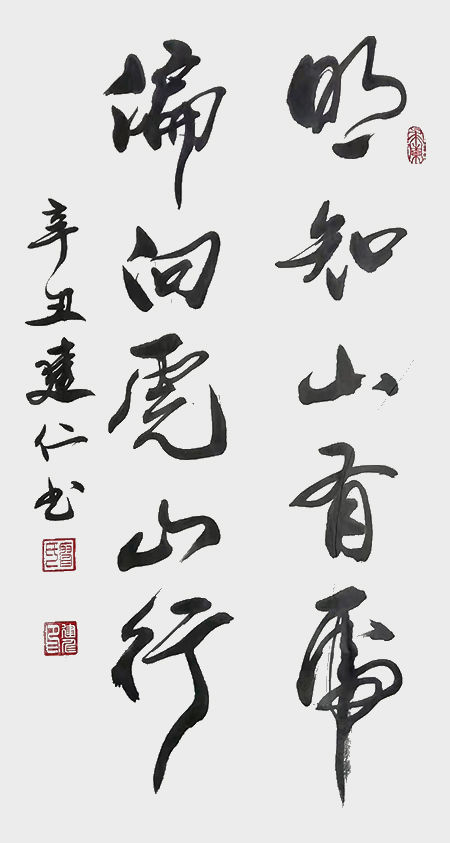 明知山有虎
偏向虎山行
辛丑建仁书